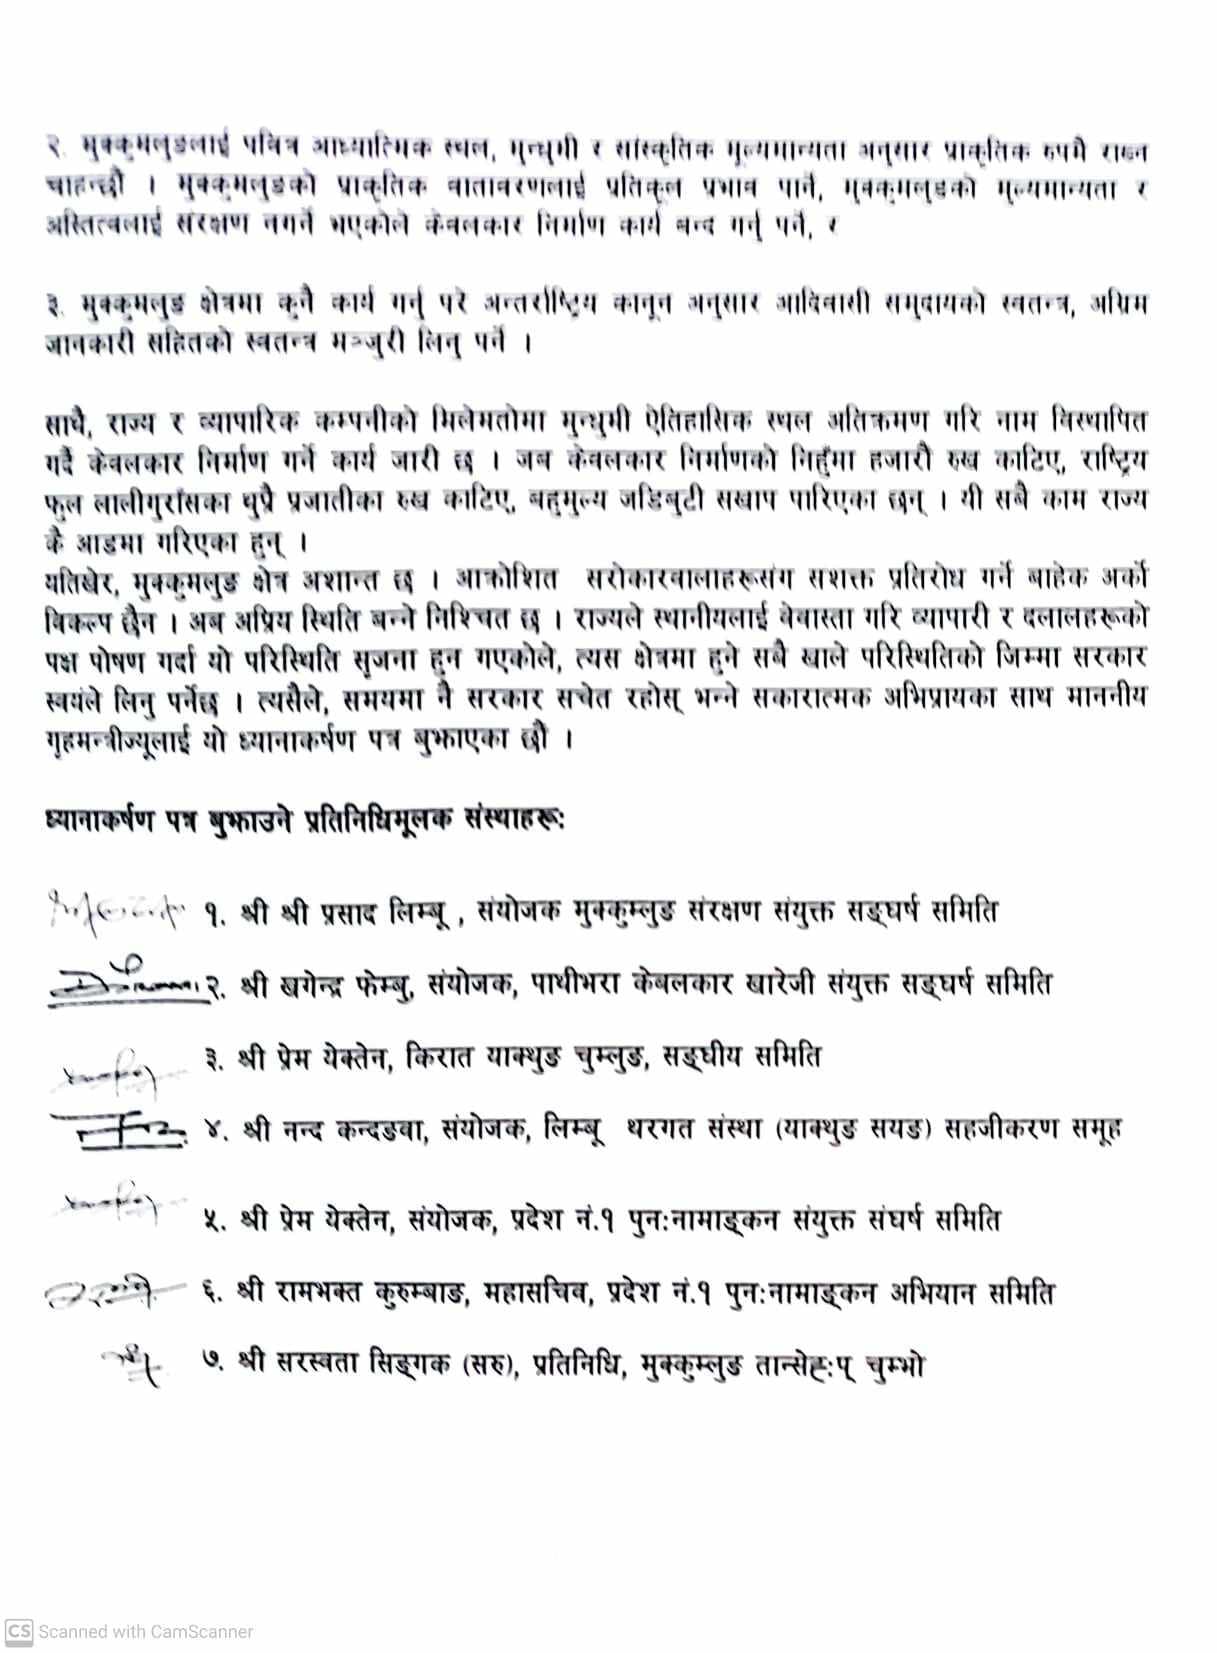 २. मुक्कुमलुङलाई पवित्र आध्यात्मिक स्थल, मुन्धुमी र सांस्कृतिक मूल्यमान्यता अनुसार प्राकृतिक रुपमै राख्न
चाहन्छौं । मुक्कुमलुङको प्राकृतिक वातावरणलाई प्रतिकूल प्रभाव पार्ने, मुक्कुमलुङको मूल्यमान्यता र
अस्तित्वलाई संरक्षण नगर्ने भएकोले केबलकार निर्माण कार्य बन्द गर्नु पर्ने, र
३. मुक्कुमलुङ क्षेत्रमा कुनै कार्य गर्नु परे अन्तर्राष्ट्रिय कानून अनुसार आदिवासी समुदायको स्वतन्त्र, अग्रिम
जानकारी सहितको स्वतन्त्र मञ्जुरी लिनु पर्ने ।
साथै, राज्य र व्यापारिक कम्पनीको मिलेमतोमा मुन्धुमी ऐतिहासिक स्थल अतिक्रमण गरि नाम विस्थापित
गर्दै केबलकार निर्माण गर्ने कार्य जारी छ । जब केबलकार निर्माणको निहुँमा हजारौ रुख काटिए, राष्ट्रिय
फुल लालीगुराँसका थुप्रै प्रजातीका रुख काटिए, बहुमुल्य जडिबुटी सखाप पारिएका छन् । यी सबै काम राज्य
कै आडमा गरिएका हुन् ।
यतिखेर, मुक्कुमलुङ क्षेत्र अशान्त छ । आक्रोशित सरोकारवालाहरूसंग सशक्त प्रतिरोध गर्ने बाहेक अर्को
विकल्प छैन । अब अप्रिय स्थिति बन्ने निश्चित छ । राज्यले स्थानीयलाई बेवास्ता गरि व्यापारी र दलालहरूको
पक्ष पोषण गर्दा यो परिस्थिति सृजना हुन गएकोले, त्यस क्षेत्रमा हुने सबै खाले परिस्थितिको जिम्मा सरकार
स्वयंले लिनु पर्नेछ । त्यसैले, समयमा नै सरकार सचेत रहोस् भन्ने सकारात्मक अभिप्रायका साथ माननीय
गृहमन्त्रीज्यूलाई यो ध्यानाकर्षण पत्र बुझाएका छौं ।
ध्यानाकर्षण पत्र बुझाउने प्रतिनिधिमूलक संस्थाहरू:
१. श्री श्री प्रसाद लिम्बू , संयोजक मुक्कुम्लुङ संरक्षण संयुक्त सङ्घर्ष समिति
२. श्री खगेन्द्र फेम्बु, संयोजक, पाथीभरा केबलकार खारेजी संयुक्त सङ्घर्ष समिति
३. श्री प्रेम येक्तेन, किरात याक्थुङ चुम्लुङ, सङ्घीय समिति
४. श्री नन्द कन्दङवा, संयोजक, लिम्बू थरगत संस्था (याक्थुङ सयङ) सहजीकरण समूह
५. श्री प्रेम येक्तेन, संयोजक, प्रदेश नं.१ पुन:नामाङ्कन संयुक्त संघर्ष समिति
६. श्री रामभक्त कुरुम्बाङ, महासचिव, प्रदेश नं.१ पुन:नामाङ्कन अभियान समिति
७. श्री सरस्वता सिङ्गक (सरु), प्रतिनिधि, मुक्कुम्लुङ तान्सेह:प् चुम्भो
CS Scanned with CamScanner